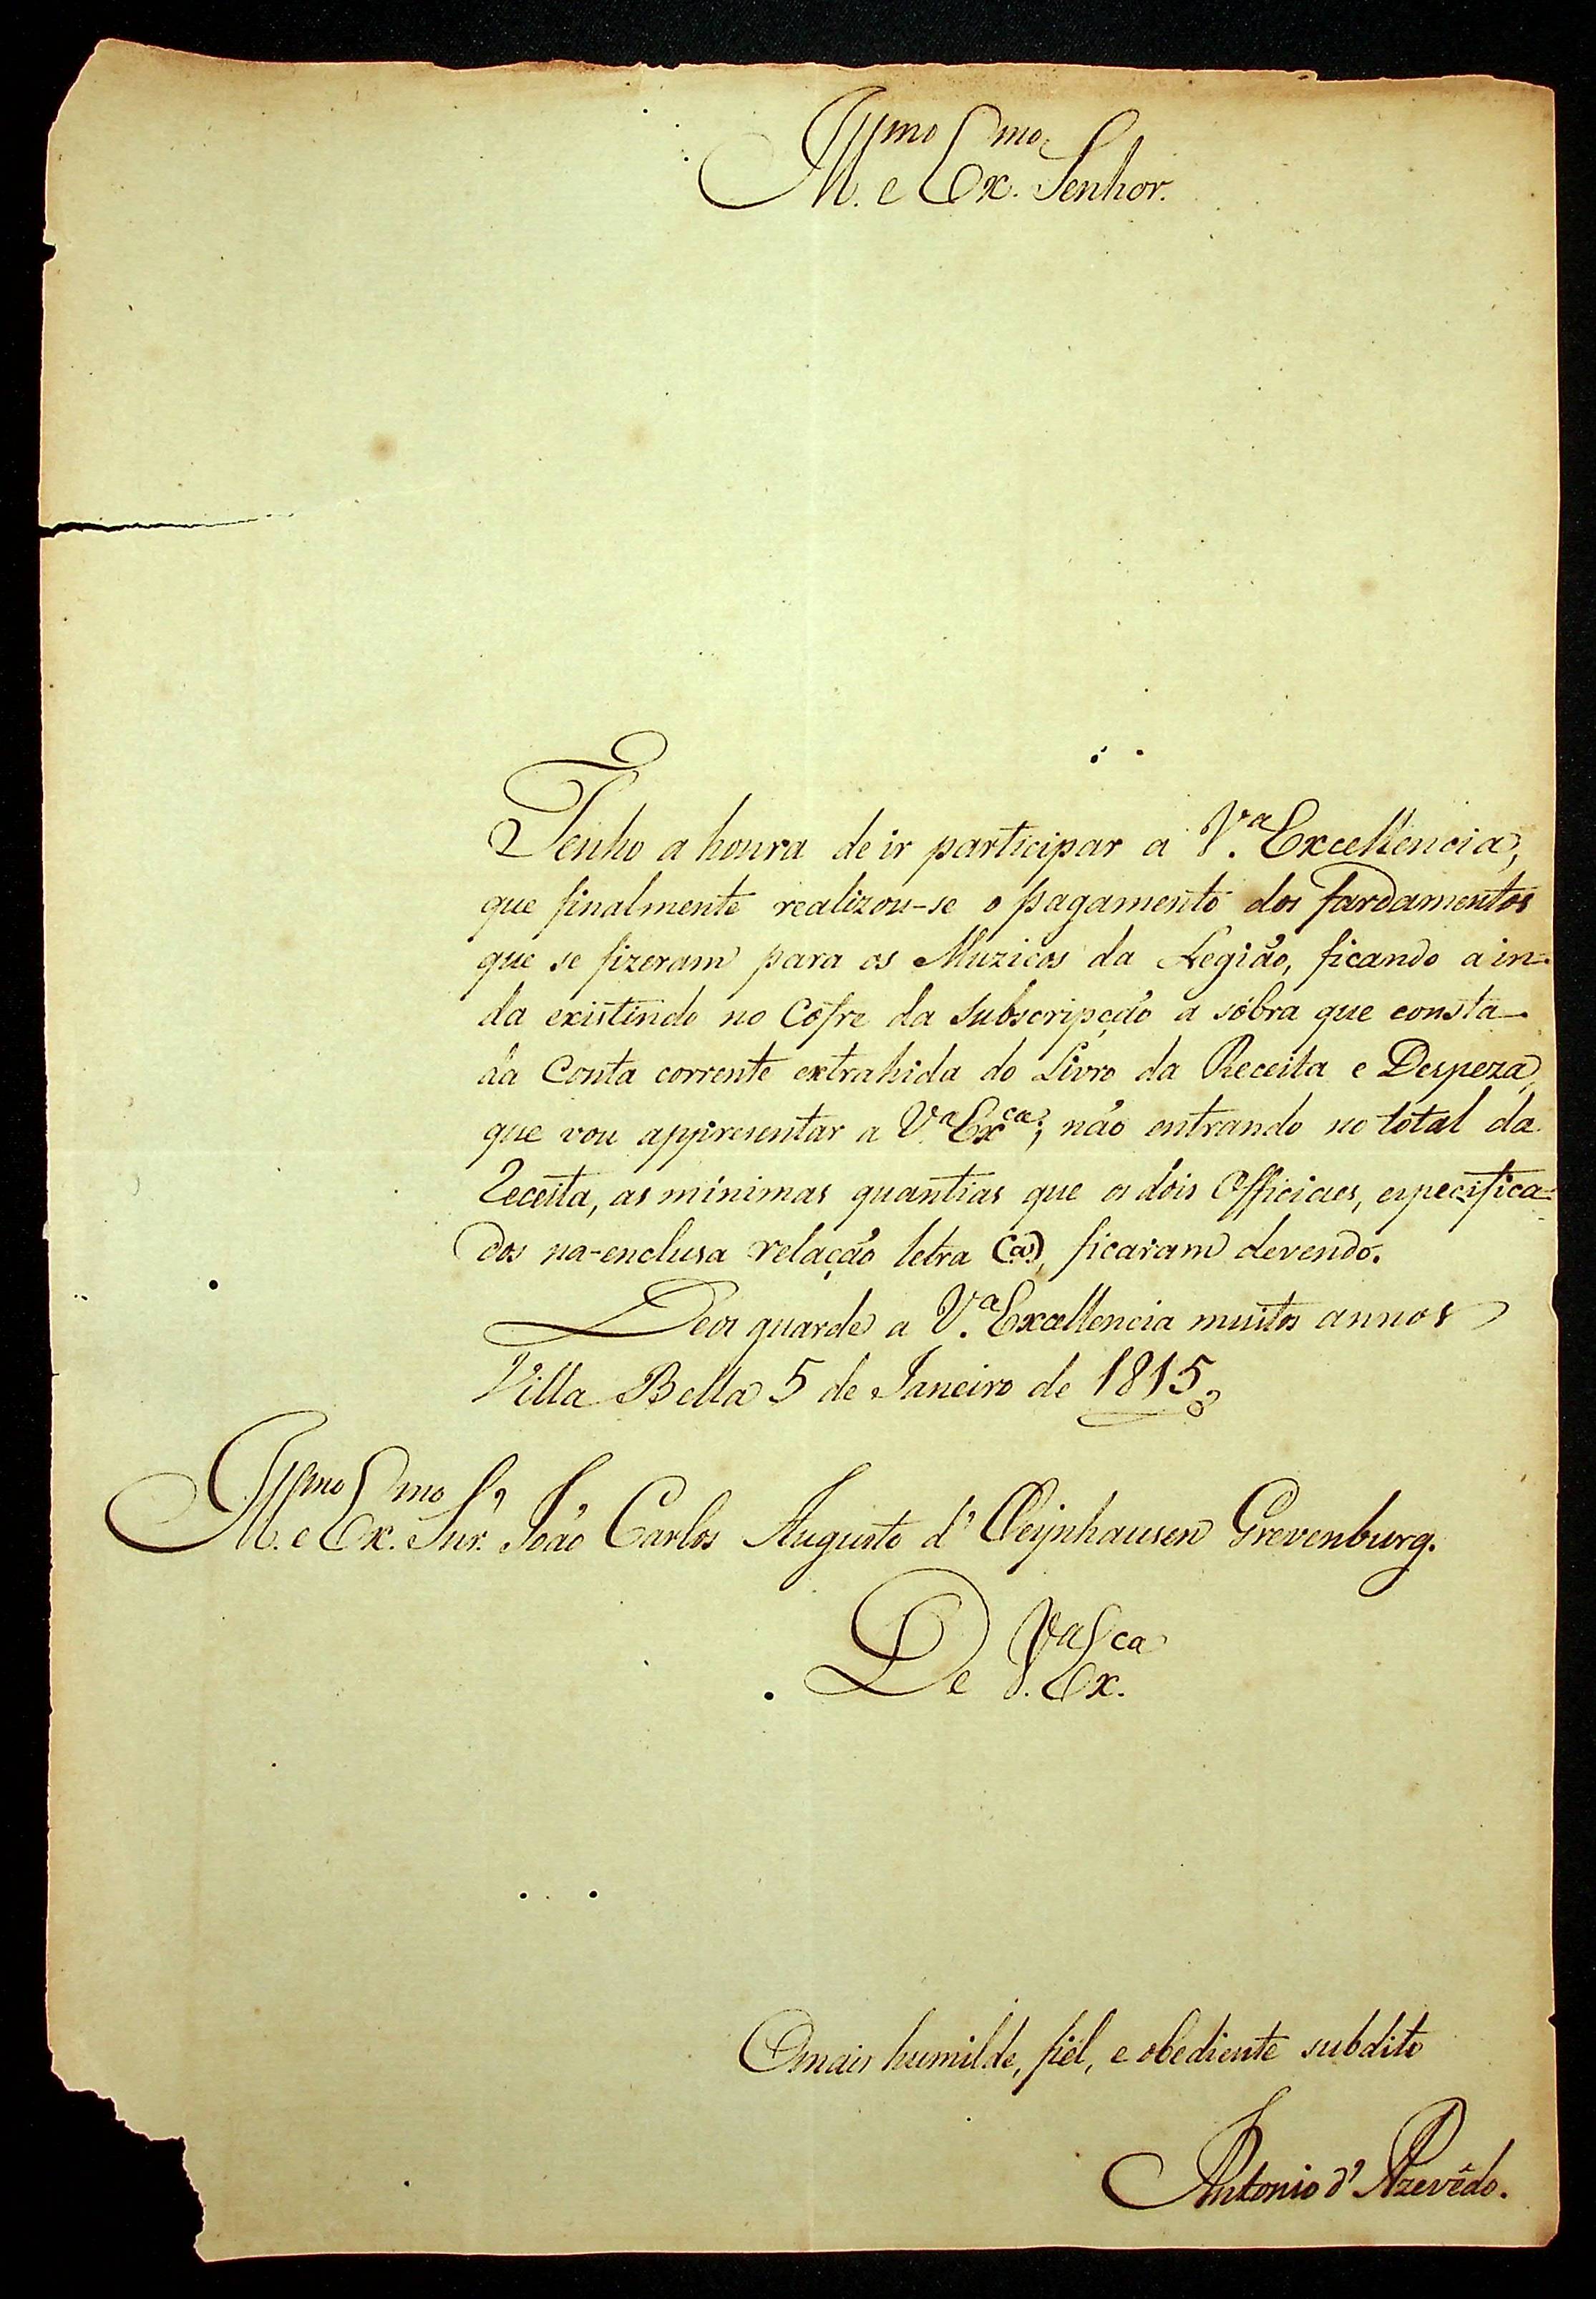 Ill.mo e Ex.mo Senhor.
Tenho a honra de ir participar a V.a Excellencia,
que finalmente realizou-se o pagamento dos fardamentos
que se fizeram para os Muzicos da Legião, ficando ain=
da existindo no Cofre da Subscripção a sóbra que consta
da Conta corrente extrahida do Livro da Receita e Despeza,
que vou appresentar a V.a Ex.ca; não entrando no total da
Receita, as mínimas quantias que os dois Officiaes, especifica=
dos na-enclusa relação letra (a), ficaram devendo.
Deos guarde a V.a Excellencia muitos annos
Villa Bella 5 de Janeiro de 1815.
Ill.mo e Ex.mo Snr. João Carlos Augusto d' Oeÿnhausen Grevenburg.
De V.a Ex.ca
O mais humilde, fiél, e obediente subdito
Antonio d' Azevêdo.